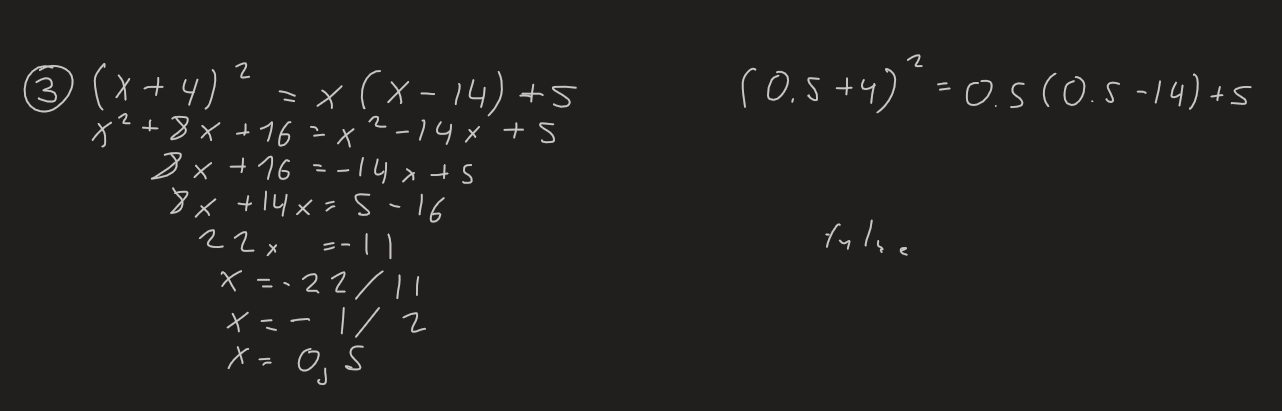 ③ (x+4)² = x(x-14)+5
x²+8x+16=x²-14x+5
8x+16=-14x+5
8x+14x=5-16
22x=-11
x=-22/11
x=-1/2
x=0,5
(0.5+4)²=0.5(0.5-14)+5
false